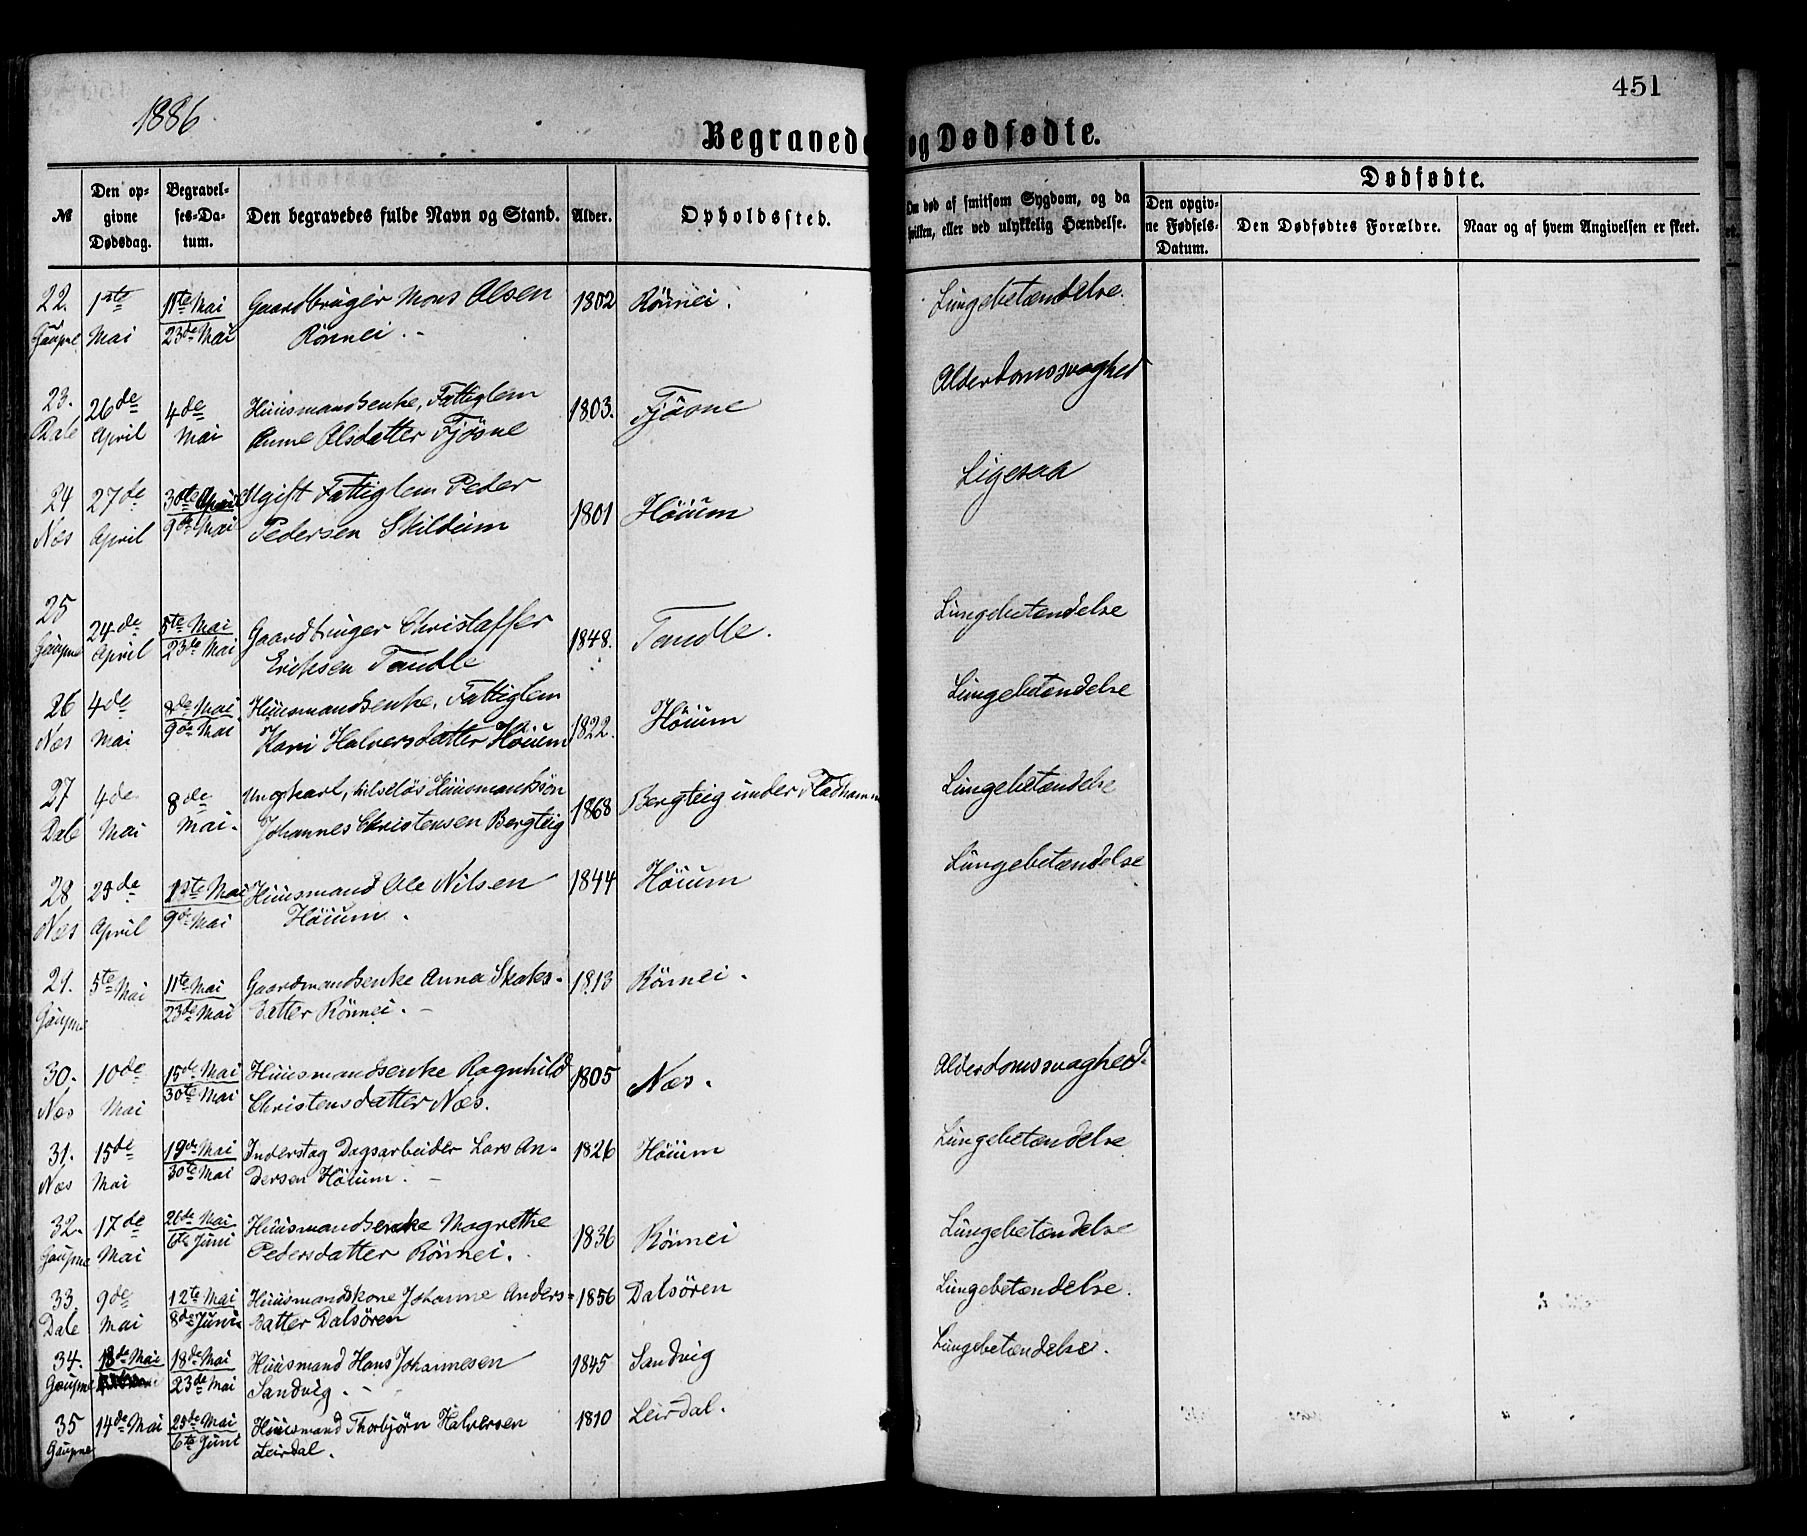 1886
451
Begravede og Dødfødte.
Dødfødte.
№
Den opgivne Dødsdag.
Begravelses-Datum.
Den begravedes fulde Navn og Stand.
Alder.
Opholdssted.
Om død af smitsom Sygdom, og da hvilken, eller ved ulykkelig Hændelse.
Den opgivne Fødsels-Datum.
Den Dødfødtes Forældre.
Naar og af hvem Angivelsen er skeet.
22. 1ste 11te Mai Gaardbruger Mons Olsen 1802 Rönnei. Lungebetændelse.
Gaupne Mai 23de Mai Rönnei.
23. 26de 4de Huusmandsenke, Fattiglem 1803. Fjösne Alderdomssvaghed
Dale April Mai Anne Olsdatter Fjösne
24 27de 30te April Ugift Fattiglem Peder 1801 Höium Ligesaa
Næs April 9de Mai Pedersen Skildum
25 24de 5te Mai Gaardbruger Christaffer 1848. Tandle. Lungebetændelse
Gaupne April 23de Mai Eriksen Tandle
26 4de 8de Mai Huusmandsenke, Fattiglem 1822. Höium Lungebetændelse
Næs Mai 9de Mai Kari Halversdatter Höium
27 4de 8de Ungkarl, Huusmandssön 1868 Bergteig under Lungebetændelse
Dale Mai Mai. Johannes Christensen Bergteig
28 25de 1ste Mai Huusmand Ole Nilsen 1844 Höium Lungebetændelse
Næs April 9de Mai Höium.
29. 5te Mai 11te Mai Gaardmandsenke Anna 1813 Rönnei.
Gaupne 23de Mai datter Rönnei.
30. 10de 15de Mai Huusmandsenke Ragnhild 1805 Næs. Alderdomssvaghed.
Næs Mai 30te Mai Christensdatter Næs.
31. 15de 19de Mai Inderst og Dagsarbeider Lars An- 1826 Höium Lungebetændelse
Næs Mai 30te Mai dersen Höium.
32. 17de 26de Mai Huusmandsenke Magrethe 1836 Rönnei Lungebetændelse
Gaupne Mai 6te Juni Pedersdatter Rönnei.
33 9de 12te Mai Huusmandskone Johanne Anders- 1856 Dalsören Lungebetændelse.
Dale Mai 8de Juni datter Dalsören
34. 13de Mai 18de Mai Huusmand Hans Johannesen 1845 Sandvig Lungebetændelse.
Gaupne 23de Mai Sandvig.
35 14de Mai 25de Mai Huusmand Thorbjørn Halversen 1810 Leirdal.
Gaupne 6te Juni Leirdal.